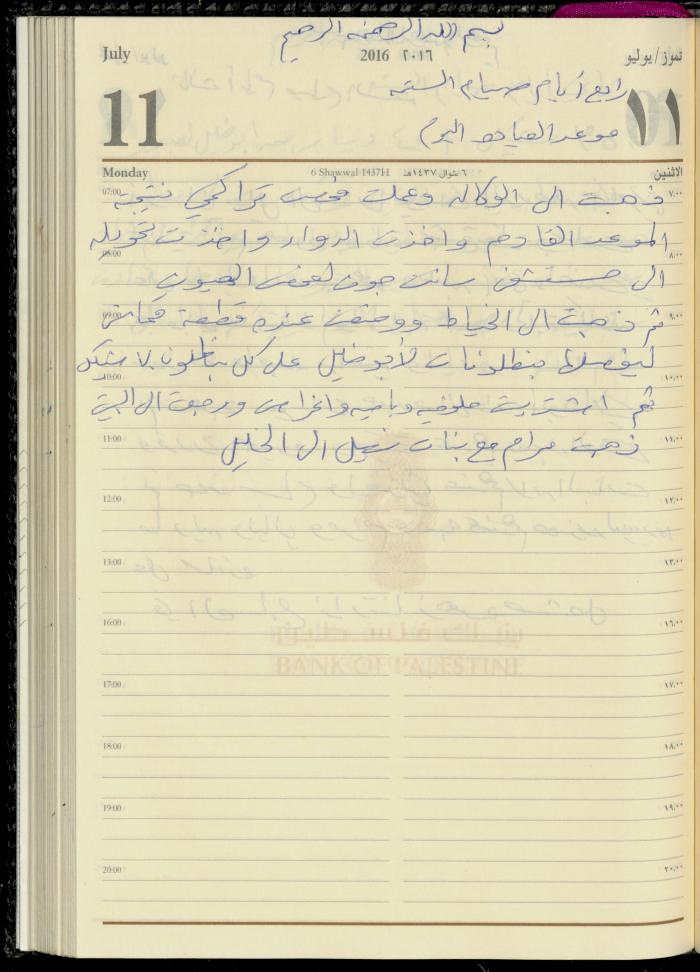 بسم الله الرحمن الرحيم
July 2016 ٢٠١٦ تموز/يوليو
رابع أيام صيام الستة
11 ١١
موعد العيادة اليوم
Monday 6 Shawwal 1437H ٦ شوال ١٤٣٧هـ الاثنين
07:00 ٧,٠٠
ذهبت الى الوكالة وعملت فحص تراكمي نتيجته
الموعد القادم واخذت الدواء واخذت تحويله
08:00 ٨,٠٠
الى مستشفى سانت جون لفحص العيون
09:00 ٩,٠٠
ثم ذهبت الى الخياط ووضعت عنده قطعة قماش
ليفصلها بنطلونات لأبو خليل على كل بنطلون ٧ شيكل
10:00 ١٠,٠٠
ثم اشتريت ملوخيه وباميه واغراض ورجعت الى البيت
11:00 ١١,٠٠
ذهبت مرام مع بنات نبيل الى الخليل
12:00 ١٢,٠٠
13:00 ١٣,٠٠
16:00 ١٦,٠٠
بنك فلسطين
BANK OF PALESTINE
17:00 ١٧,٠٠
18:00 ١٨,٠٠
19:00 ١٩,٠٠
20:00 ٢٠,٠٠